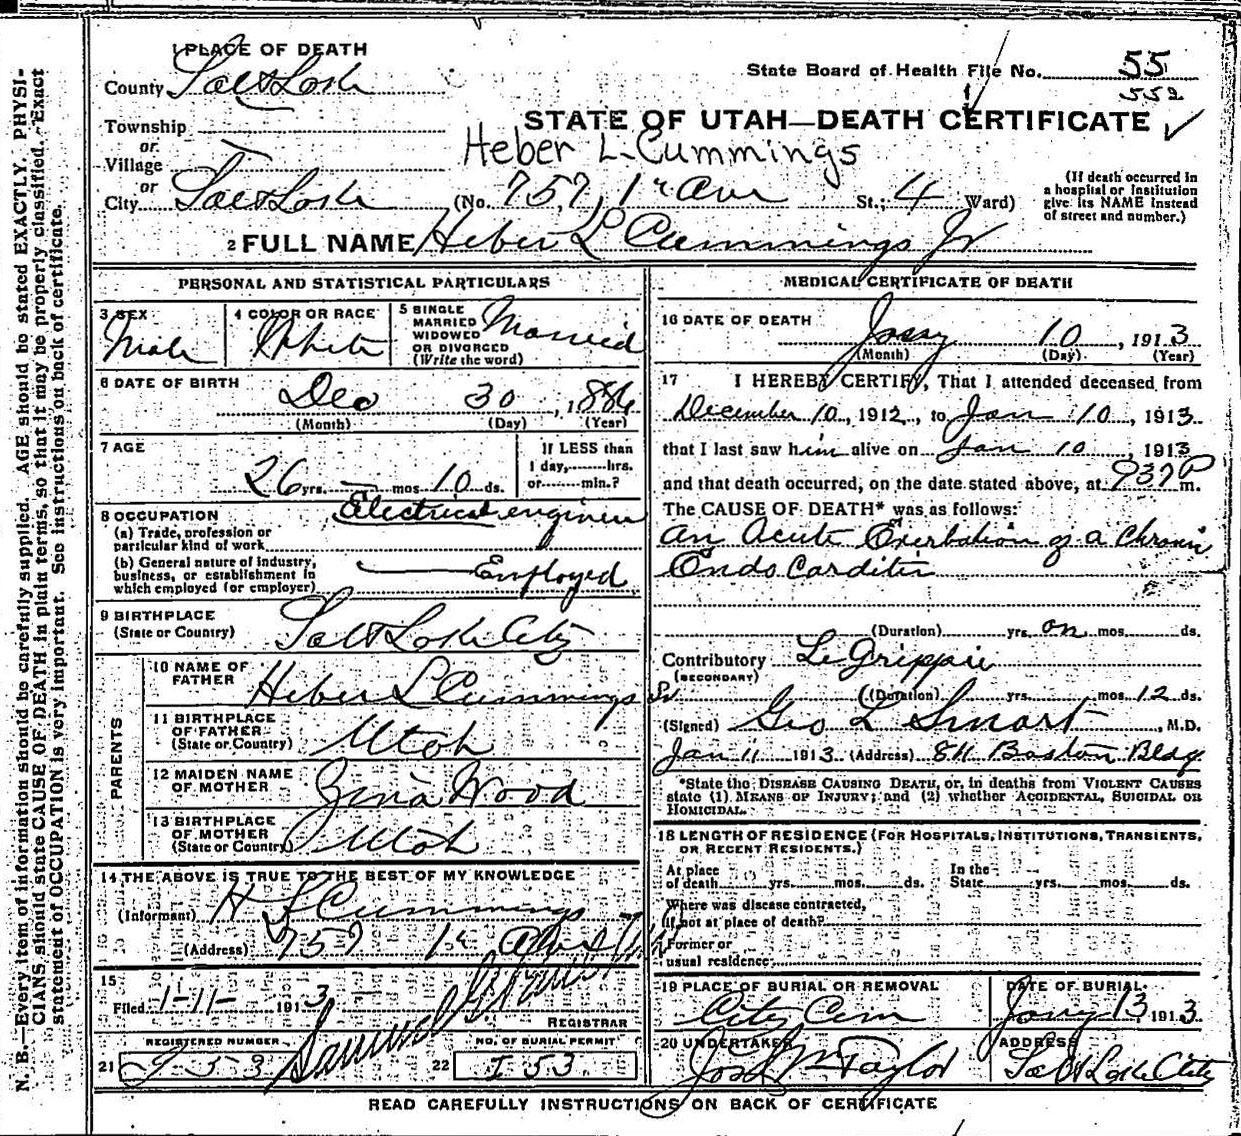 1 PLACE OF DEATH
County Salt Lake
State Board of Health File No. 55
552
Township
or
Village
or
City Salt Lake
STATE OF UTAH—DEATH CERTIFICATE
Heber L. Cummings
(No. 757, 1st Ave St.; 4 Ward)
(If death occurred in a hospital or institution give its NAME instead of street and number.)
2 FULL NAME Heber L Cummings Jr
PERSONAL AND STATISTICAL PARTICULARS
3 SEX Male
4 COLOR OR RACE White
5 SINGLE MARRIED WIDOWED OR DIVORCED (Write the word) Married
6 DATE OF BIRTH
Dec 30, 1886
(Month) (Day) (Year)
7 AGE
26 yrs. — mos. 10 ds.
If LESS than 1 day, hrs. or min.?
8 OCCUPATION
(a) Trade, profession or particular kind of work Electrical engineer
(b) General nature of industry, business, or establishment in which employed (or employer) Employed
9 BIRTHPLACE
(State or Country) Salt Lake City
PARENTS
10 NAME OF FATHER Heber L Cummings Sr
11 BIRTHPLACE OF FATHER (State or Country) Utah
12 MAIDEN NAME OF MOTHER Zina Wood
13 BIRTHPLACE OF MOTHER (State or Country) Utah
14 THE ABOVE IS TRUE TO THE BEST OF MY KNOWLEDGE
(Informant) H L Cummings
(Address) 757 1st Ave
15
Filed 1-11- 1913
Samuel G. Paul
REGISTRAR
REGISTERED NUMBER
21 I 53
NO. OF BURIAL PERMIT
22 I 53
MEDICAL CERTIFICATE OF DEATH
16 DATE OF DEATH
Jany 10, 1913
(Month) (Day) (Year)
17 I HEREBY CERTIFY, That I attended deceased from
December 10, 1912, to Jan 10, 1913
that I last saw him alive on Jan 10, 1913
and that death occurred, on the date stated above, at 937 P m.
The CAUSE OF DEATH* was as follows:
An Acute Exerbation of a Chronic
Endo Carditis
(Duration) yrs. on mos. ds.
Contributory La Grippie
(SECONDARY)
(Duration) yrs. mos. 12 ds.
(Signed) Geo L Smart, M.D.
Jan 11 1913 (Address) 811 Boston Bldg
*State the DISEASE CAUSING DEATH, or, in deaths from VIOLENT CAUSES
state (1) MEANS OF INJURY; and (2) whether ACCIDENTAL, SUICIDAL OR
HOMICIDAL.
18 LENGTH OF RESIDENCE (FOR HOSPITALS, INSTITUTIONS, TRANSIENTS,
OR RECENT RESIDENTS.)
At place of death yrs. mos. ds. In the State yrs. mos. ds.
Where was disease contracted,
if not at place of death?
Former or
usual residence
19 PLACE OF BURIAL OR REMOVAL
City Cem
DATE OF BURIAL
Jany 13 1913
20 UNDERTAKER
Jos Wm Taylor
ADDRESS
Salt Lake City
READ CAREFULLY INSTRUCTIONS ON BACK OF CERTIFICATE
N. B.—Every item of information should be carefully supplied. AGE should be stated EXACTLY. PHYSI-
CIANS should state CAUSE OF DEATH in plain terms, so that it may be properly classified. Exact
statement of OCCUPATION is very important. See instructions on back of certificate.